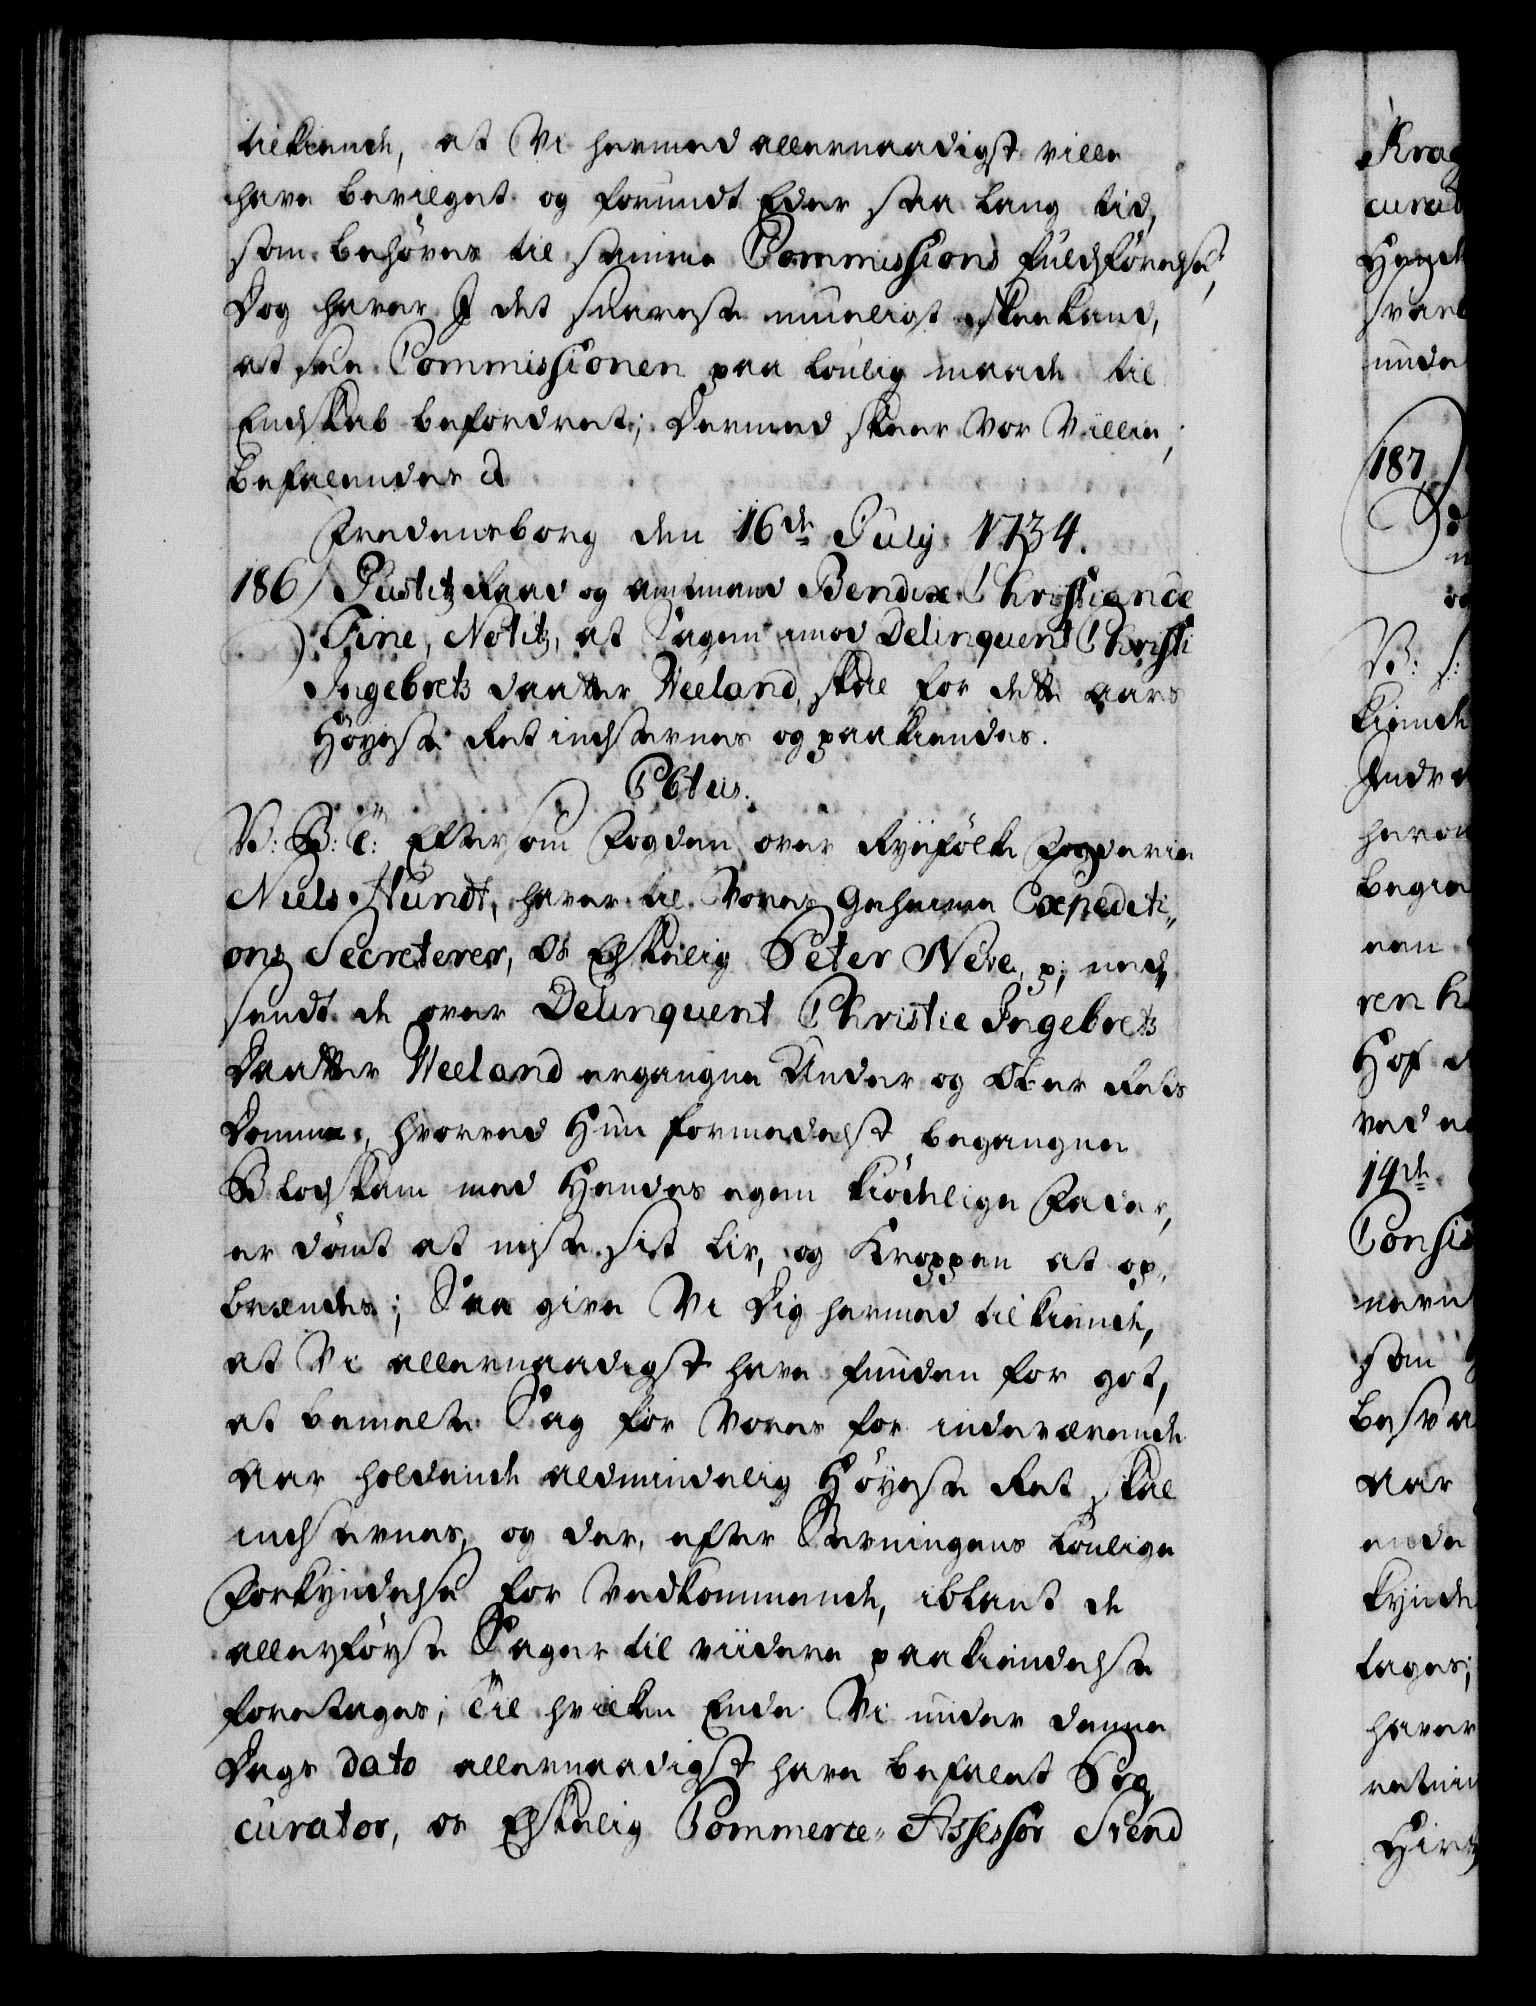 tilkiende, at Vi hermed allernaadigst ville
have bevilget og forundt Eder saa lang tid,
som behöves til samme Commissions fuldförelse,
Dog haver I det snareste mueligt skee kand,
at see Commissionen paa lovlig maade til
Endskab befordret; Dermed skeer Vor Villie,
Befalendes
Fredensborg den 16de July 1734.
186) Justitz Raad og Amtmand Bendix Christian de
Fine, Notitz, at Sagen imod Delinquent Christi
Ingebrets Daatter Veeland, skal for dette Aars
Höyeste Ret indstevnes og paakiendes.
C6tus.
V: G: T: Eftersom Fogden over Ryefölke Fogderie
Niels Hundt, haver til Vores Geheime Expediti„
ons Secreterer, Os Elskelig Peter Neve, p; ned„
sendt de over Delinquent Christie Ingebrets
Daatter Veeland ergangne Under og Ober Rets
Domme, hvorved Hun formedelst begangne
Blodskam med Hendes egen kiödelige Fader,
er dömt at miste sit Liv, og Kroppen at op„
brændes; Saa give Vi Dig hermed tilkiende,
at Vi allernaadigst have funden for got,
at bemelte Sag for Vores for indeværende
Aar holdende aldmindelig Höyeste Ret skal
indstevnes, og der, efter Stevningens lovlige
Forkyndelse for Vedkommende, iblant de
allerförste Sager til viidere paakiendelse
foretages; Til hvilken Ende Vi under denne
Dags dato allernaadigst have befalet Pro„
curator, os Elskelig Commerce-Assessor Svend
Krag
curat
Hend
svar
unde
187)
V: S:
kiende
Endv
hervo
begie
een
ren h
Hof
ved
14de
Consis
nevn
som
besva
Aar
ende
kynde
tages;
haver